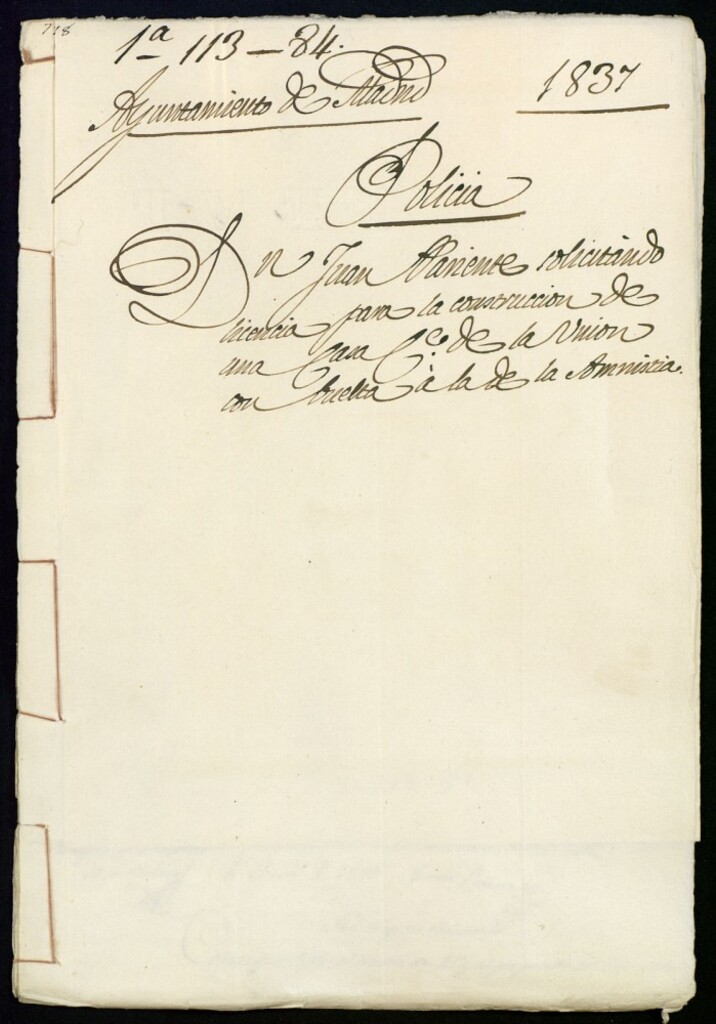 718
1ª 113-84.
Ayuntamiento de Madrid
1837
Policia
Dn Juan Pariente solicitando
licencia para la construccion de
una Casa C.e de la Union
con buelta à la de la Amnistia.